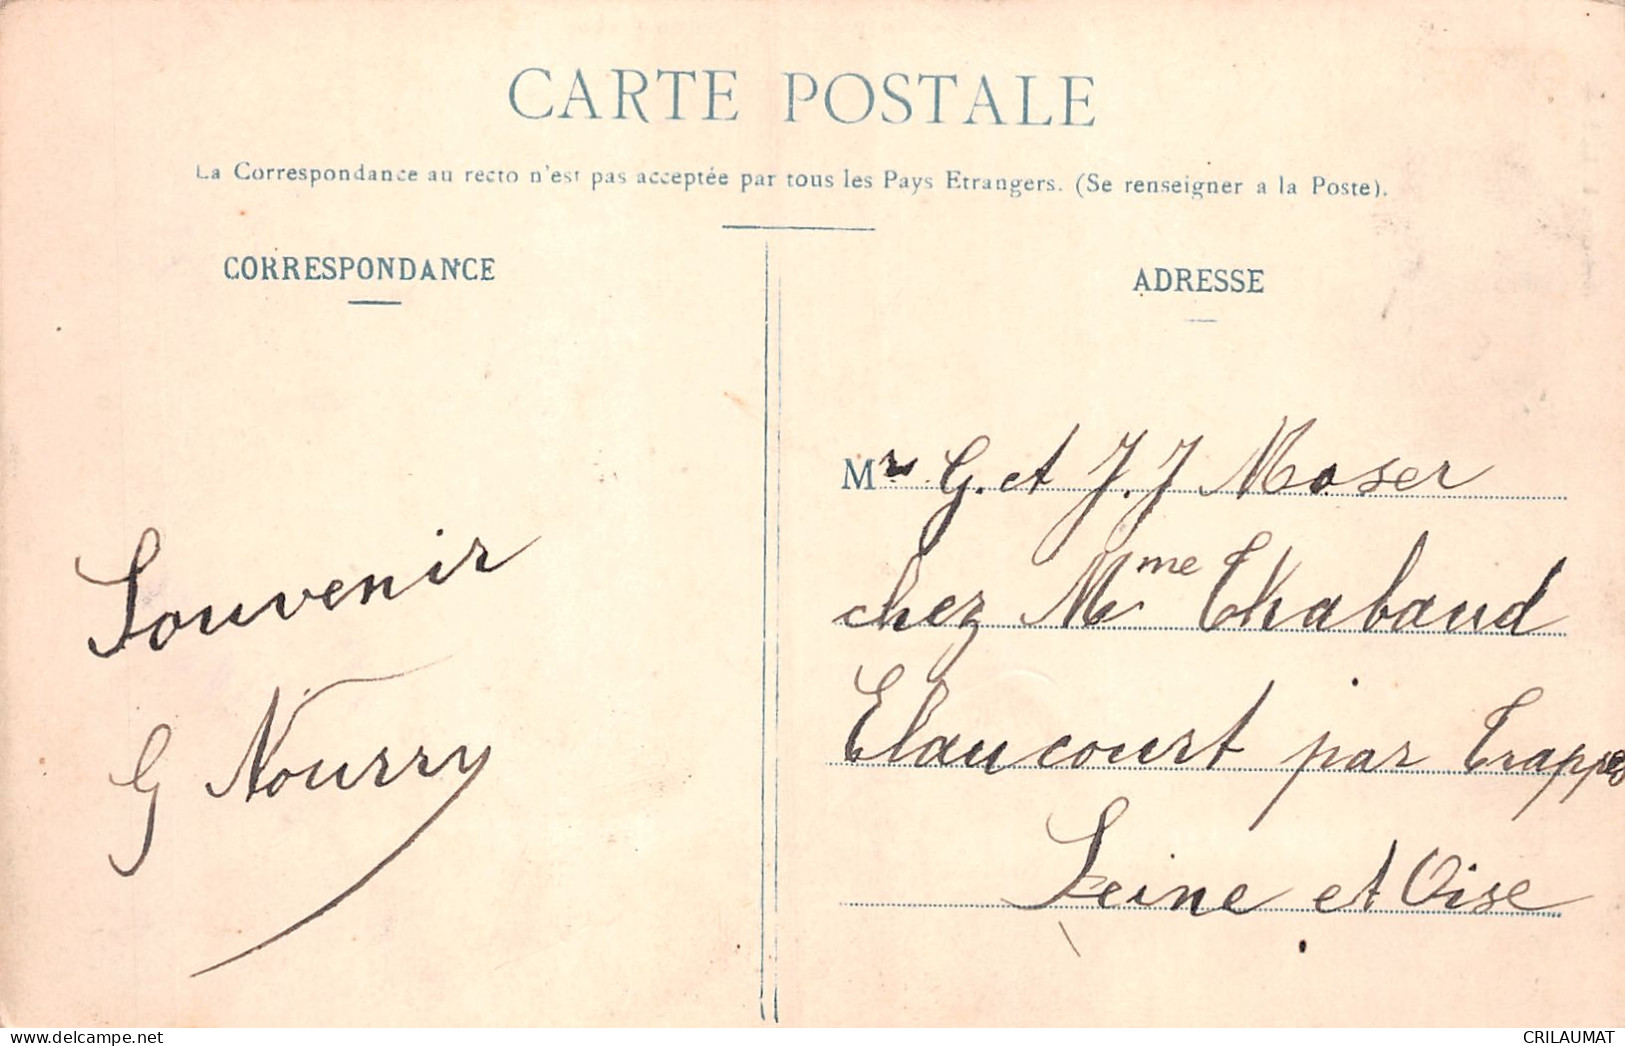 CARTE POSTALE
La Correspondance au recto n'est pas acceptée par tous les Pays Etrangers. (Se renseigner a la Poste).
CORRESPONDANCE
Souvenir
G Nourry
ADRESSE
Mr G. et J. J Moser
chez Mme Chabaud
Elancourt par Trappes
Seine et Oise
delcampe.net
CRILAUMAT